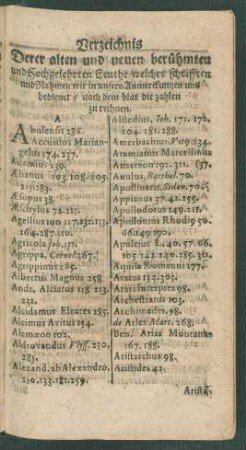 Verzeichnis
Derer alten und neuen berühmten
und Hochgelehrten Leuthe welches schrifften
und Nahmen wir in unsern Anmerckungen uns
bedienet / nach dem blat die zahlen
zu rechnen.
A
Abulensis 286.
Accursius Marian-
gelus 174. 237.
239.
Ælianus 193. 108. 205.
219. 283.
Æsopus 38.
Æschylus 72. 211.
Agellius 100. 117. 132. 133.
264. 287. 110.
Agricola Joh. 117.
Agrippa, Cornel. 267.
Agrippinus 285.
Albertus Magnus 258
Andr. Alciatus 118 213.
232.
Alcidamus Eleates 285.
Alcimus Avitus 254.
Alcmæon 102.
Aldrovandus Vlyss. 230.
285.
Alexand. ab Alexandro.
210. 133. 181. 259.
Alstedius, Joh. 171. 172.
204. 281. 288.
Amerbachius, Vitg 234.
Ammianus Marcellinus
Anacreon 192. 311. (37.
Anulus, Barthol. 70.
Apollinaris, Sidon. 70.
Appianus 37. 42. 255.
Apollodorus 149. 217.
Apollonius Rhodig 50.
66. 149. 190.
Apulejus L. 40. 57. 66.
105. 242. 249. 285. 311.
Aquila Romanus 177.
Aratus 132. 202.
Arati Interpres 98.
Archestratus 103.
Archimedes, 98.
de Arles Mart. 268.
Ben. Arias Montanus
167. 188.
Aristarchus 98.
Aristides 42.
Aristæ-